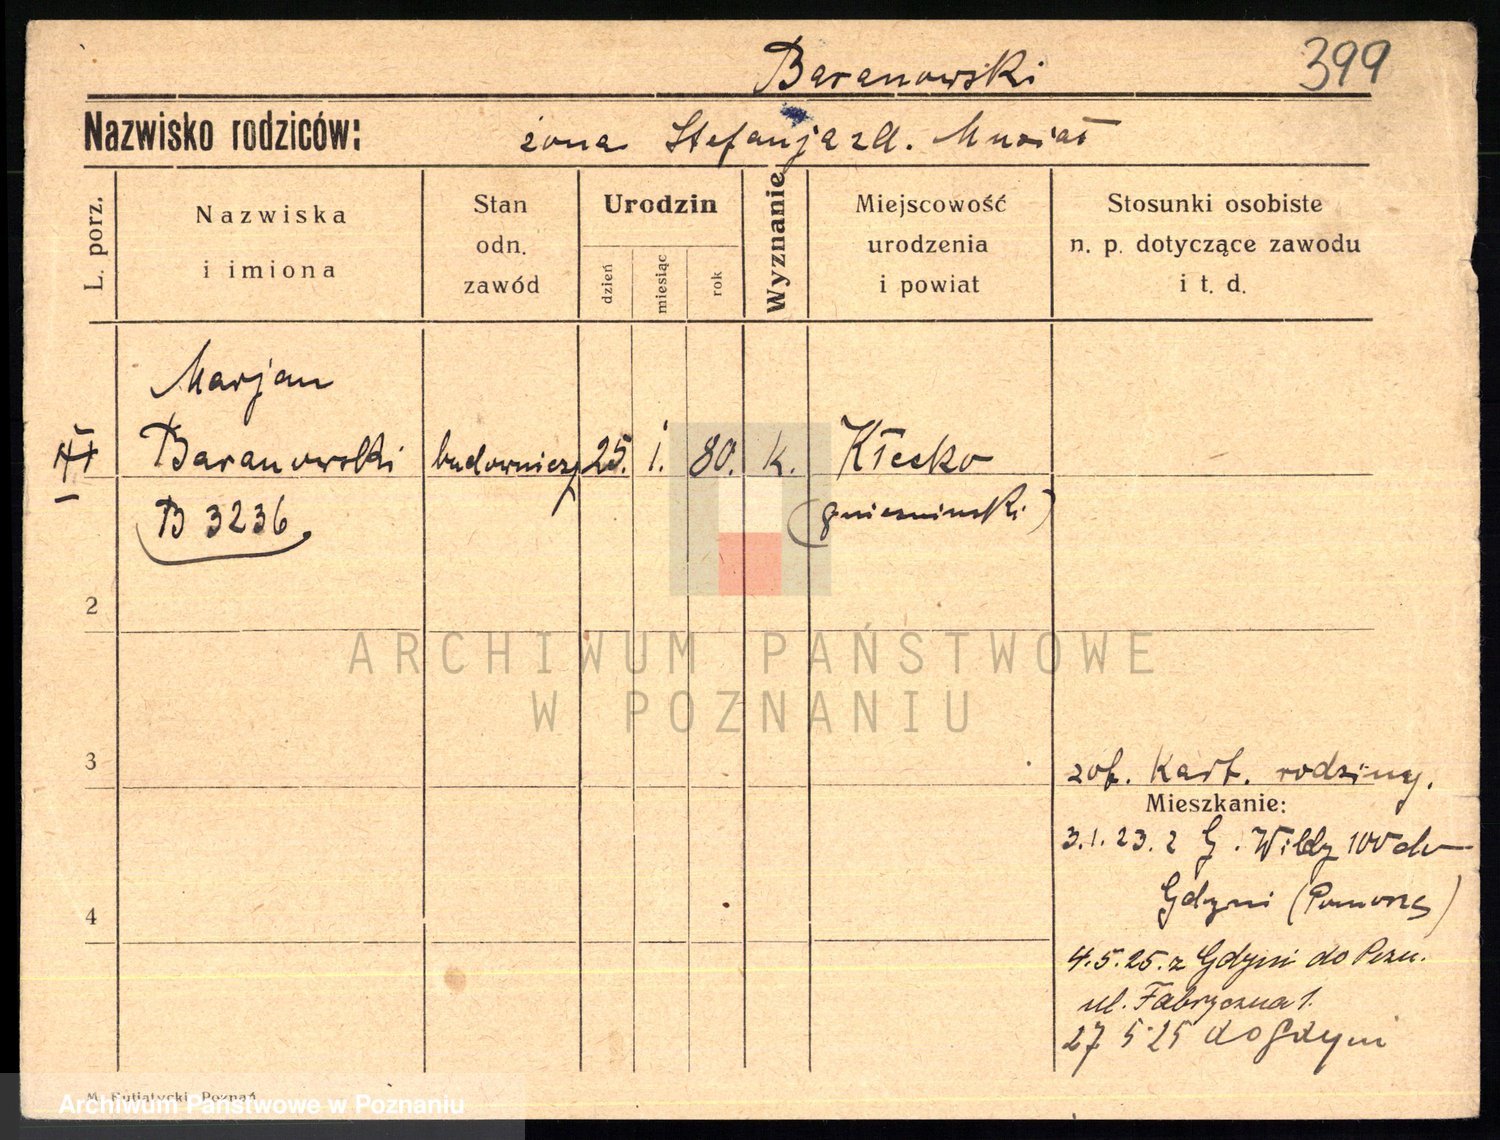 Baranowski
399
Nazwisko rodziców:
żona Stefanja zd. Musiał
L. porz.
Nazwiska
i imiona
Stan
odn.
zawód
Urodzin
dzień
miesiąc
rok
Wyznanie
Miejscowość
urodzenia
i powiat
Stosunki osobiste
n. p. dotyczące zawodu
i t. d.
Marjan
Baranowski
budowniczy
25.
1.
80.
k.
Kłecko
B 3236
(gnieznienski)
2
ARCHIWUM PAŃSTWOWE
W POZNANIU
3
zob. Kart. rodziny.
Mieszkanie:
3.1.23. z G. Wildy 100 do
Gdyni (Pomorze)
4
4.5.25. z Gdyni do Pozn.
ul. Fabryczna 1.
27 5 25 do Gdyni
Poznań
Archiwum Państwowe w Poznaniu